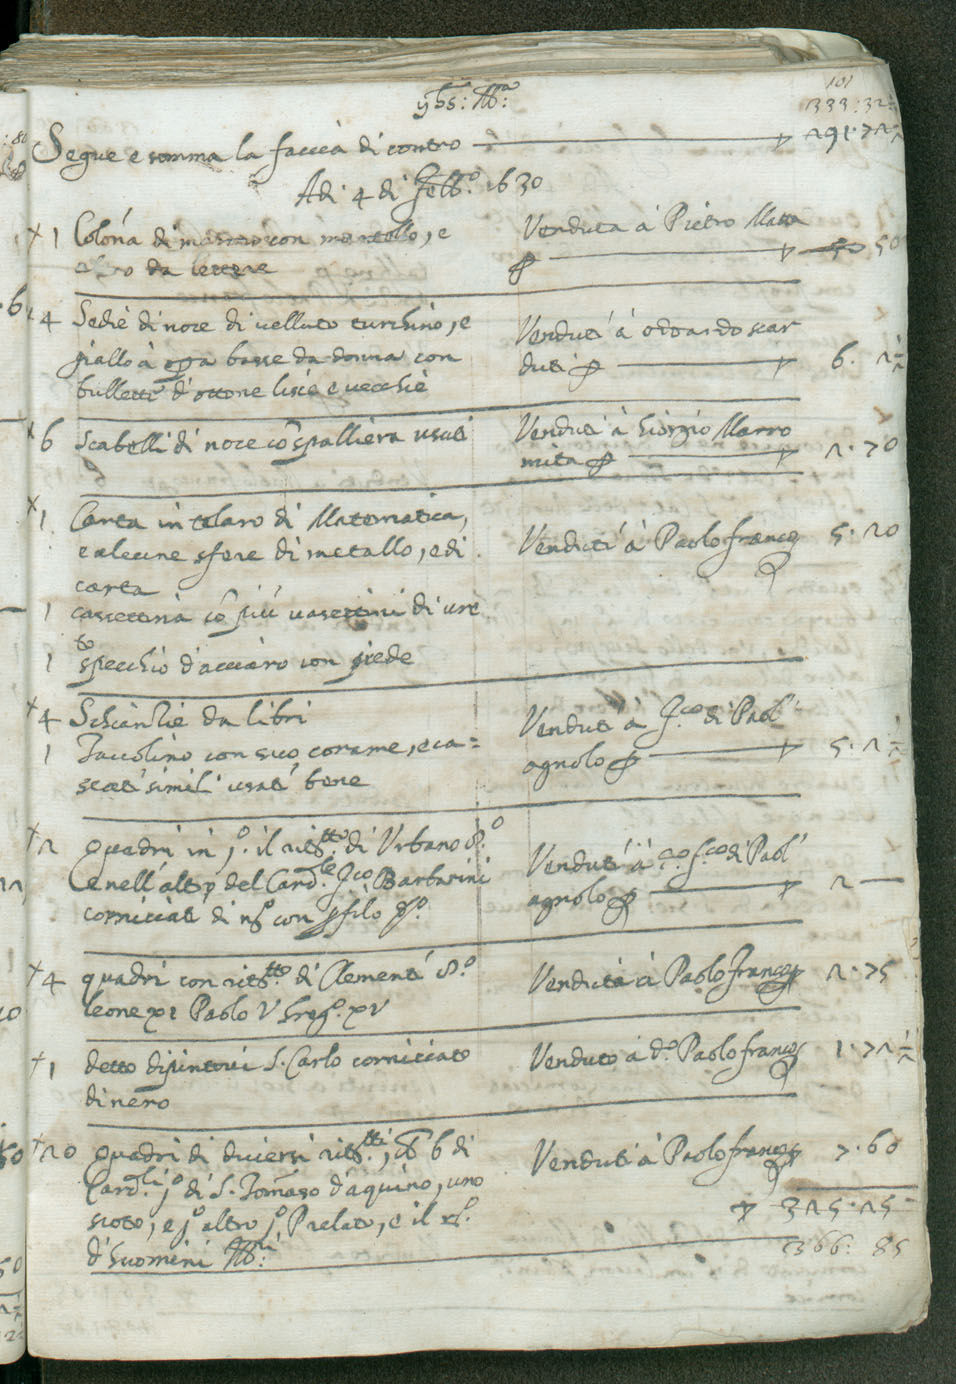 101
yhs: Ma:
333:32½
Segue e somma la faccia di contro 291·72½
Adi 4 di Febb.o 1630
+ 1 Colóna di marmo con martello, e
altro da lettere
Venduta à Pietro Matta
50
+ 4 Sedie di noce di velluto turchino, e
giallo à opa basse da donna con
bullette d'ottone liscie e vecchie
Venduti à Odoardo scar
duti 6. 2½
+ 6 scabelli di noce cõ spalliera usati
Venduti à Giorgio Marro
mita 2·70
+ 1 Carta in telaro di Matematica,
e alcune sfere di metallo, e di
carta
Venduti à Paolo franco 5·20
1 cassettina cõ più vasettini di vet
to
1 specchio d'acciaro con piede
+ 4 Schanzie da libri
1 Tavolino con suo corame, e ca=
scati simili usati bene
Venduti à J.co di Paol'
agnolo 5·2½
+ 2 quadri in j.o il rit.tto di Urbano 8.o
e nell'altro del Card.le J.co Barbarini
corniciati di n.o con filo d'o.
Venduti à J.co di Paol'
agnolo 2 —
+ 4 quadri con rit.tto di Clementi 8.o
leone xi Paolo V Greg.o xv
Venduti à Paolo franco 2·75
+ 1 detto dipintovi S. Carlo corniciato
di nero
Venduto à d.o Paolo franco 1·72½
+ 20 quadri di diversi rit.tti, cõ 6 di
Card.li j.o di S. Tomaso d'aquino, uno
scoto, e j.o altro j.o Prelato, e il r.o
d'huomini
Venduti à Paolo franco 7·60
325·25
366: 85